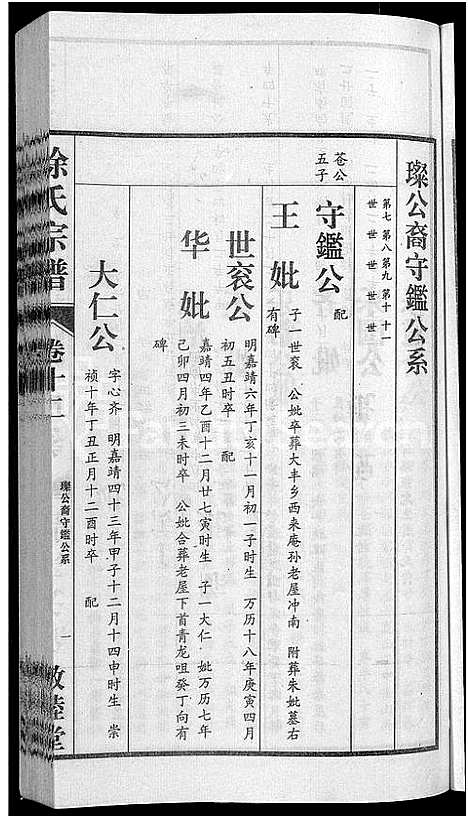 璨公裔守鑑公系
第七世 第八世 第九世 第十世 十一世
苍公五子
守鑑公
配
王妣
子一世衮 公妣卒葬大丰乡西来庵孙老屋冲南 附葬朱妣墓右
有碑
世衮公
明嘉靖六年丁亥十一月初一子时生 万历十八年庚寅四月
初五丑时卒 配
华妣
嘉靖四年乙酉十二月廿七寅时生 子一大仁 妣万历七年
己卯四月初三未时卒 公妣合葬老屋下首青龙咀癸丁向有
碑
大仁公
字心齐 明嘉靖四十三年甲子十二月十四申时生 崇
祯十年丁丑正月十二酉时卒 配
徐氏宗谱
卷十二
璨公裔守鑑公系
一
敦睦堂